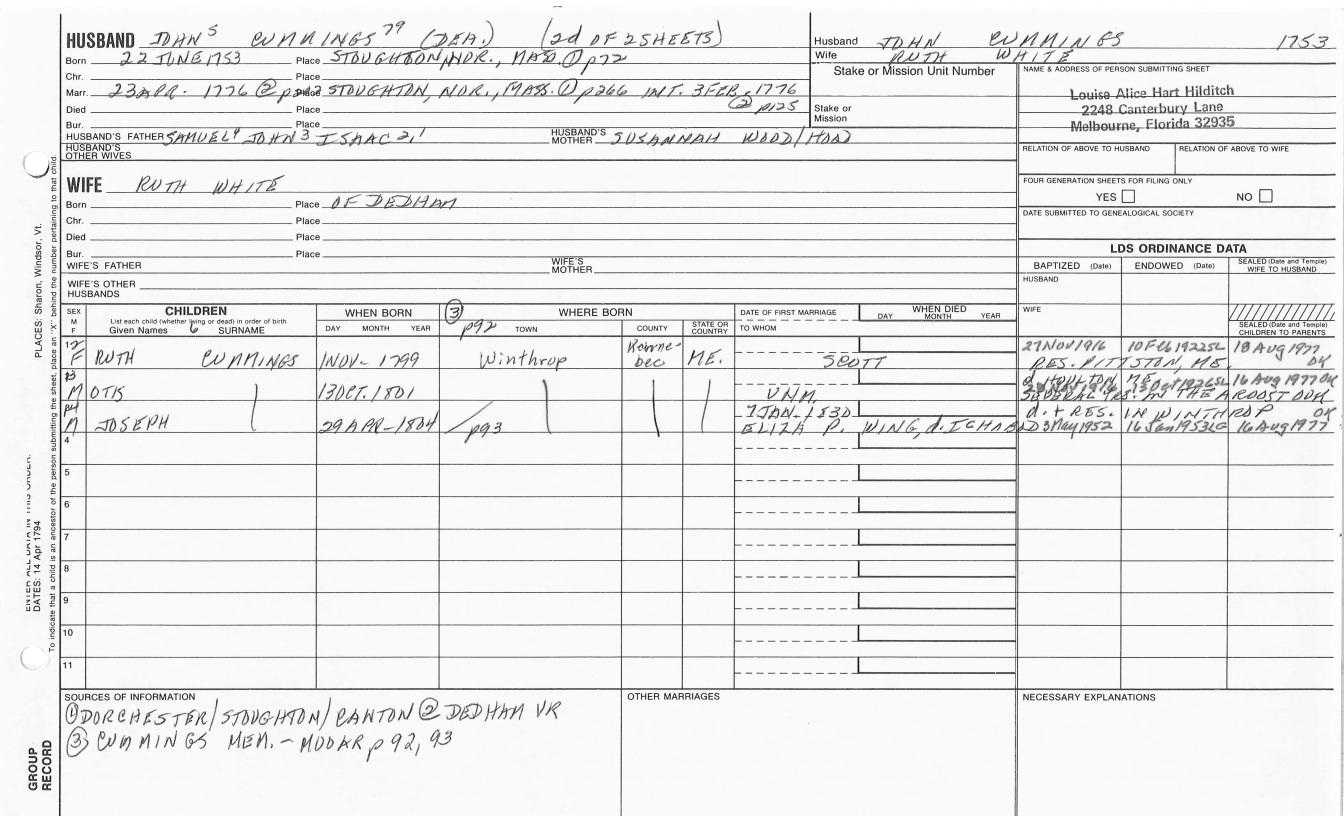 HUSBAND JOHN 5 CUMMINGS 79 (DEA.) (2d OF 2 SHEETS)
Born 22 JUNE 1753 Place STOUGHTON, NOR., MASS. ① p72
Chr. Place
Marr. 23 APR. 1776 ② Place STOUGHTON, NOR., MASS. ① p266 INT. 3 FEB. 1776
② p125
Died Place
Bur. Place
HUSBAND'S FATHER SAMUEL 4 JOHN 3 ISAAC 2,1 HUSBAND'S MOTHER SUSANNAH WOOD/HOOD
HUSBAND'S OTHER WIVES
Husband JOHN CUMMINGS 1753
Wife RUTH WHITE
Stake or Mission Unit Number
Stake or Mission
NAME & ADDRESS OF PERSON SUBMITTING SHEET
Louise Alice Hart Hilditch
2248 Canterbury Lane
Melbourne, Florida 32935
RELATION OF ABOVE TO HUSBAND RELATION OF ABOVE TO WIFE
FOUR GENERATION SHEETS FOR FILING ONLY
YES NO
DATE SUBMITTED TO GENEALOGICAL SOCIETY
WIFE RUTH WHITE
Born Place OF DEDHAM
Chr. Place
Died Place
Bur. Place
WIFE'S FATHER WIFE'S MOTHER
WIFE'S OTHER HUSBANDS
LDS ORDINANCE DATA
BAPTIZED (Date) ENDOWED (Date) SEALED (Date and Temple) WIFE TO HUSBAND
HUSBAND
WIFE
SEALED (Date and Temple) CHILDREN TO PARENTS
SEX M F CHILDREN WHEN BORN ③ WHERE BORN DATE OF FIRST MARRIAGE WHEN DIED
List each child (whether living or dead) in order of birth DAY MONTH YEAR
Given Names 6 SURNAME DAY MONTH YEAR p92 TOWN COUNTY STATE OR COUNTRY TO WHOM
12 F RUTH CUMMINGS 1 NOV- 1799 Winthrop Kennebec ME. SCOTT 27 NOV 1916 10 Feb 1922 SL 18 Aug 1977
RES. PITTSTON, ME. OK
13 M OTIS 13 OCT. 1801 UNM. d. HOULTON ME. 13 Oct 1926 SL 16 Aug 1977 OK
SEVERAL YRS. IN THE AROOSTOOK
14 M JOSEPH 29 APR-1804 p93 7 JAN-1830 d. + RES. IN WINTHROP OK
ELIZA P. WING, d. ICHABOD 3 May 1952 16 Jan 1953 LG 16 Aug 1977
4
5
6
7
8
9
10
11
SOURCES OF INFORMATION
① DORCHESTER/STOUGHTON/CANTON ② DEDHAM VR
③ CUMMINGS MEM. - MUDAR p 92, 93
OTHER MARRIAGES
NECESSARY EXPLANATIONS
PLACES: Sharon, Windsor, Vt.
ENTER ALL DATA IN THIS ORDER:
DATES: 14 Apr 1794
To indicate that a child is an ancestor of the person submitting the sheet, place an "X" behind the number pertaining to that child.
GROUP RECORD